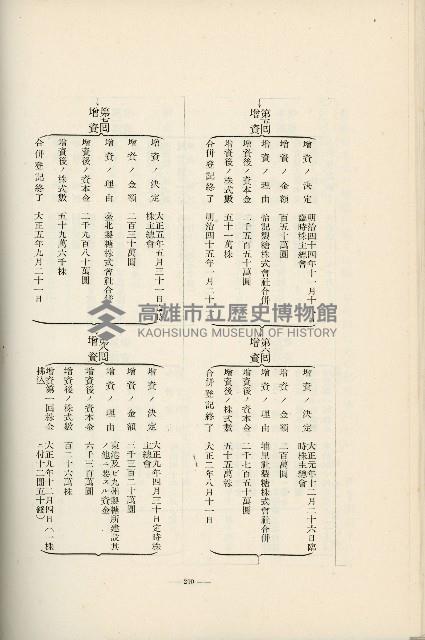 第五回
增資
增資ノ決定 明治四十四年十一月十
臨時株主總會
增資ノ金額 百五十萬圓
增資ノ理由 怡記製糖株式會社合併
增資後ノ資本金 二千五百五十萬圓
增資後ノ株式數 五十一萬株
合併登記終了 明治四十五年一月二十
第六回
增資
增資ノ決定 大正元年十二月二十六日臨
時株主總會
增資ノ金額 二百萬圓
增資ノ理由 埔里社製糖株式會社合併
增資後ノ資本金 二千七百五十萬圓
增資後ノ株式數 五十五萬株
合併登記終了 大正二年八月十一日
第七回
增資
增資ノ決定 大正五年五月二十一日
株主總會
增資ノ金額 二百三十萬圓
增資ノ理由 臺北製糖株式會社合併
增資後ノ資本金 二千九百八十萬圓
增資後ノ株式數 五十九萬六千株
合併登記終了 大正五年九月二十一日
第八回
增資
增資ノ決定 大正九年四月三十日定時株
主總會
增資ノ金額 三千三百二十萬圓
增資ノ理由 東港及ビ九州製糖所建設其
ノ他ニ要スル資金
增資後ノ資本金 六千三百萬圓
增資後ノ株式數 百二十六萬株
增資第一回株金 大正九年十二月四日(一株
拂込 ニ付十二圓五十錢)
高雄市立歷史博物館
KAOHSIUNG MUSEUM OF HISTORY
290